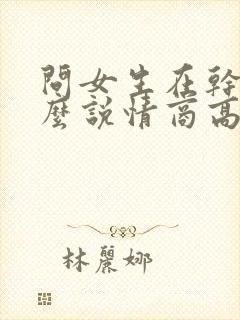 問女生在幹
麼說情商高
林麗娜